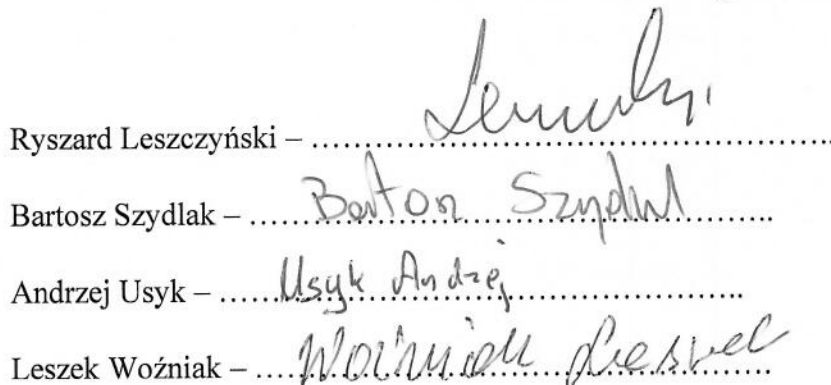 Ryszard Leszczyński – ........................................
Bartosz Szydlak – .... Bartosz Szydlak ....
Andrzej Usyk – .... Usyk Andrzej ....
Leszek Woźniak – .... Woźniak Leszek ....